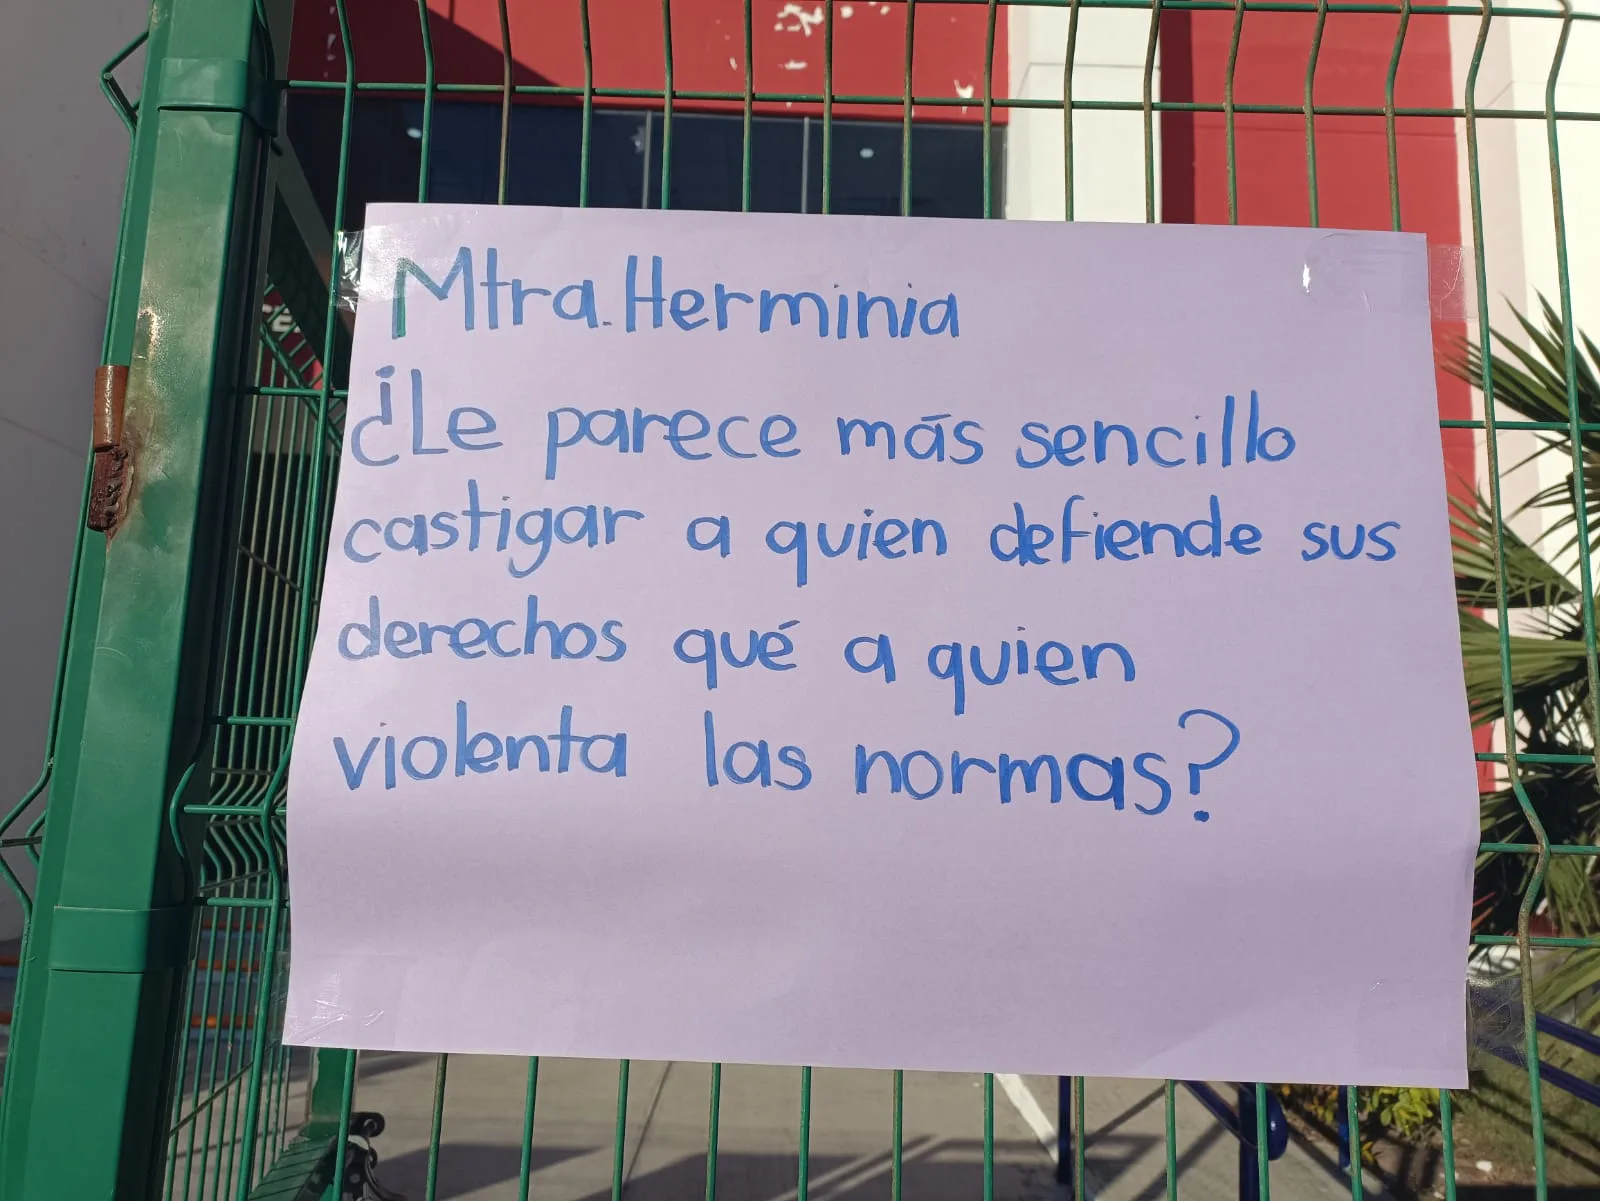 Mtra. Herminia
¿Le parece más sencillo
castigar a quien defiende sus
derechos qué a quien
violenta las normas?